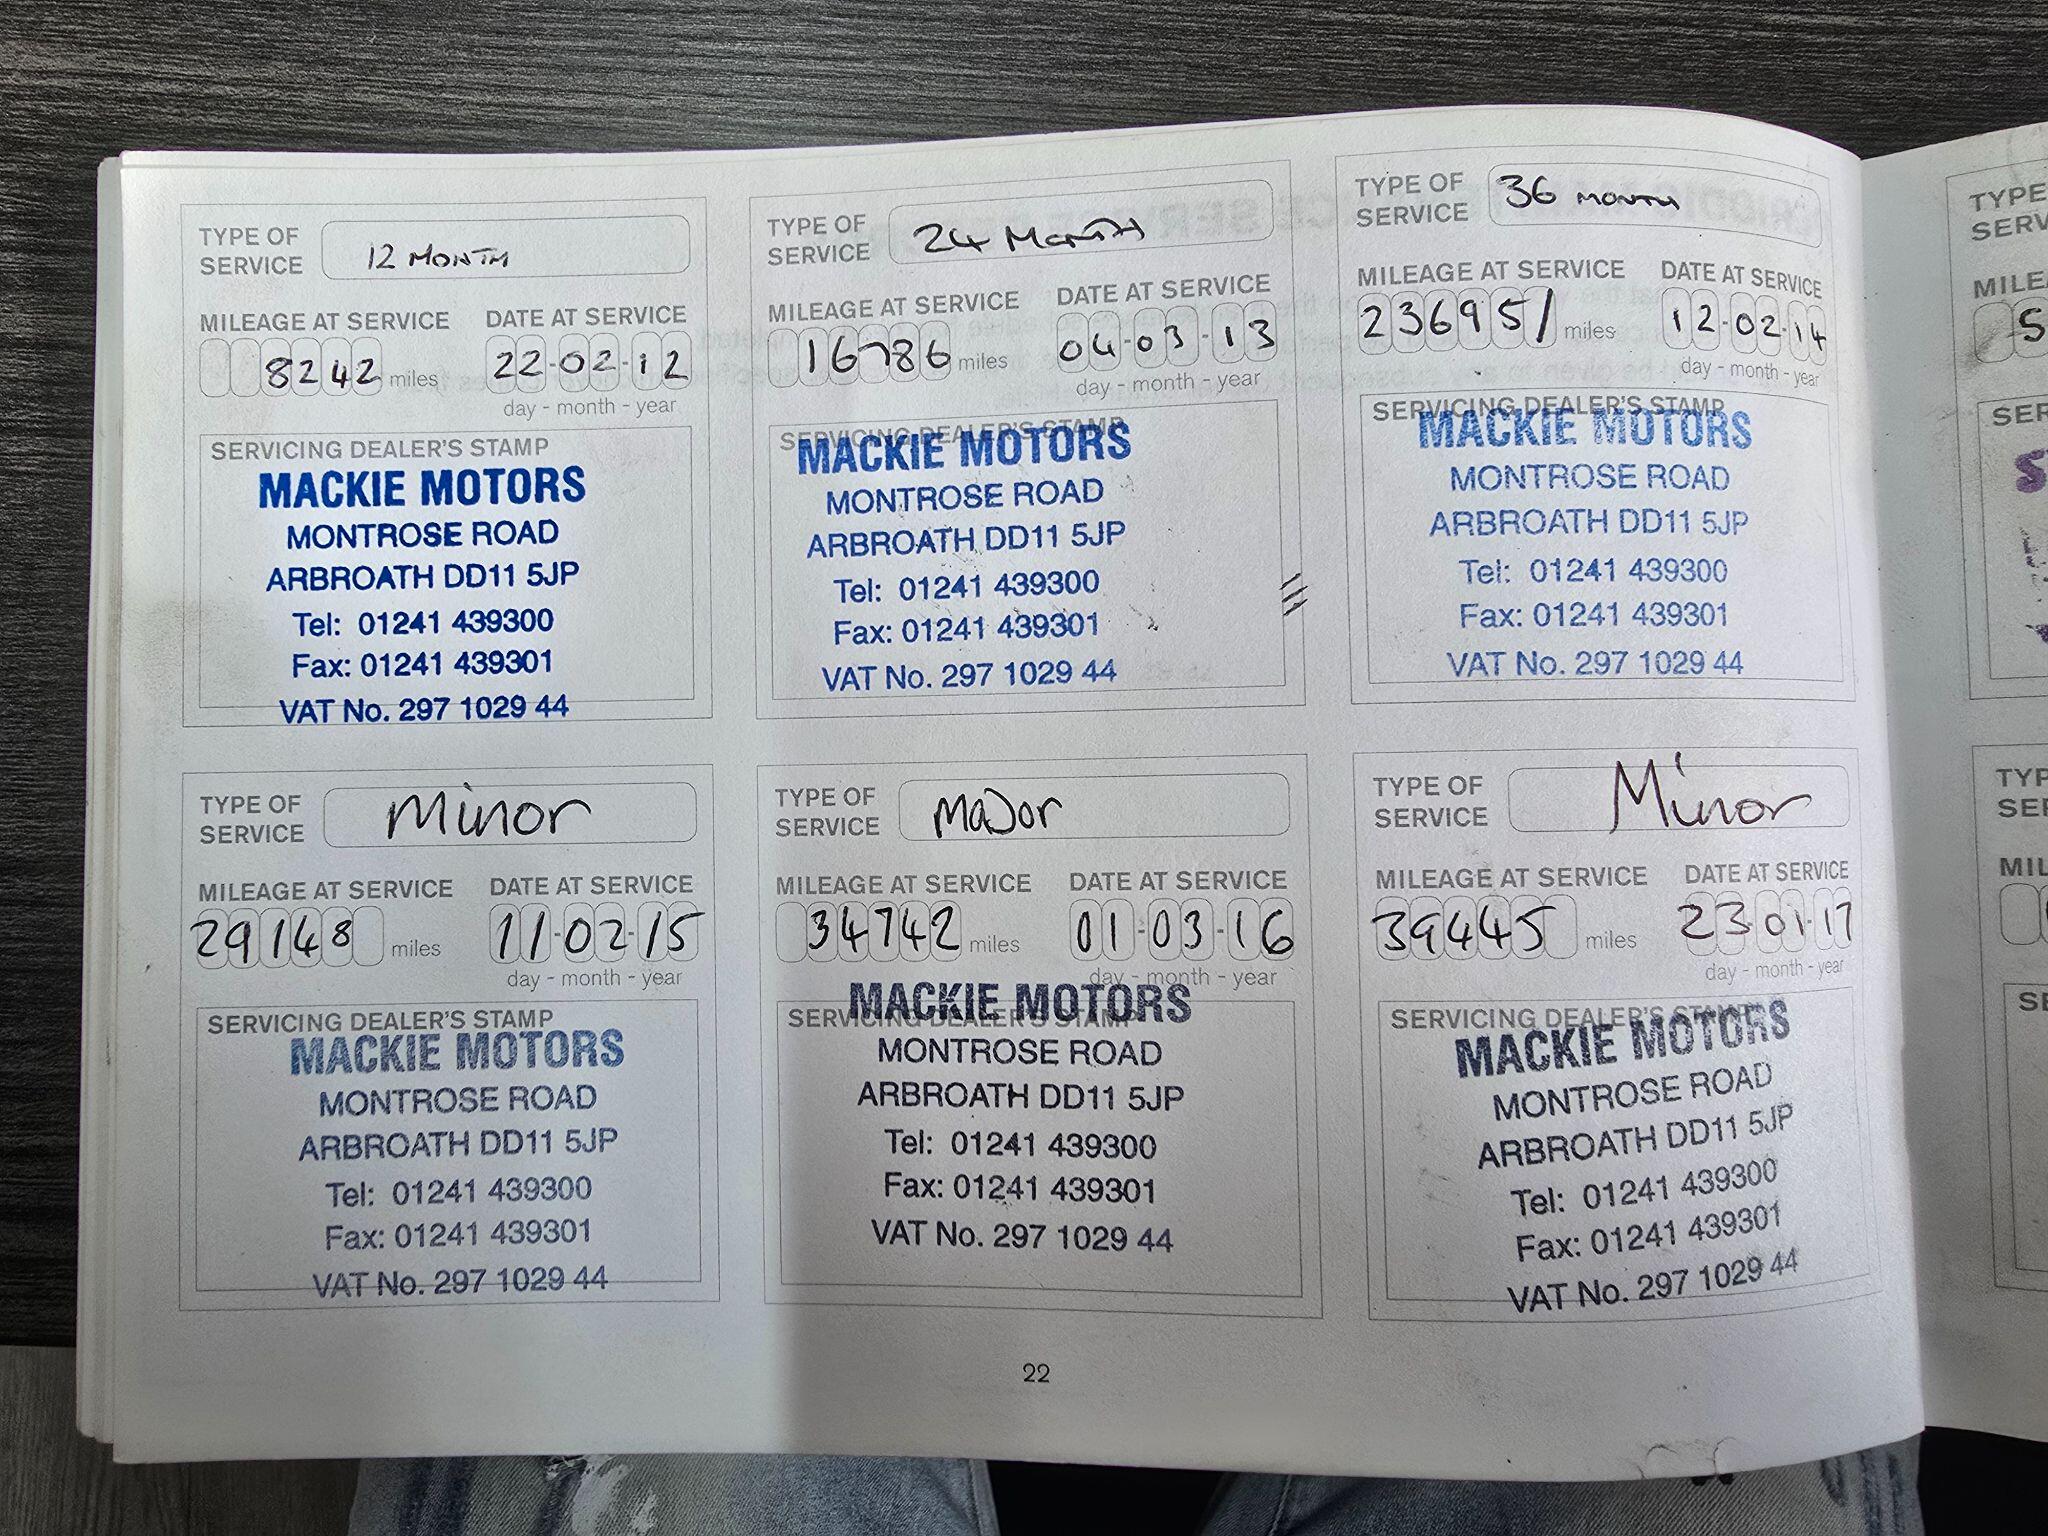 TYPE OF SERVICE 12 MONTH
MILEAGE AT SERVICE DATE AT SERVICE
8242 miles 22-02-12
day - month - year
SERVICING DEALER'S STAMP
MACKIE MOTORS
MONTROSE ROAD
ARBROATH DD11 5JP
Tel: 01241 439300
Fax: 01241 439301
VAT No. 297 1029 44
TYPE OF SERVICE 24 MONTH
MILEAGE AT SERVICE DATE AT SERVICE
16786 miles 04-03-13
day - month - year
SERVICING DEALER'S STAMP
MACKIE MOTORS
MONTROSE ROAD
ARBROATH DD11 5JP
Tel: 01241 439300
Fax: 01241 439301
VAT No. 297 1029 44
TYPE OF SERVICE 36 MONTH
MILEAGE AT SERVICE DATE AT SERVICE
23695/ miles 12-02-14
day - month - year
SERVICING DEALER'S STAMP
MACKIE MOTORS
MONTROSE ROAD
ARBROATH DD11 5JP
Tel: 01241 439300
Fax: 01241 439301
VAT No. 297 1029 44
TYPE OF SERVICE Minor
MILEAGE AT SERVICE DATE AT SERVICE
29148 miles 11-02-15
day - month - year
SERVICING DEALER'S STAMP
MACKIE MOTORS
MONTROSE ROAD
ARBROATH DD11 5JP
Tel: 01241 439300
Fax: 01241 439301
VAT No. 297 1029 44
TYPE OF SERVICE MaJor
MILEAGE AT SERVICE DATE AT SERVICE
34742 miles 01-03-16
day - month - year
SERVICING DEALER'S STAMP
MACKIE MOTORS
MONTROSE ROAD
ARBROATH DD11 5JP
Tel: 01241 439300
Fax: 01241 439301
VAT No. 297 1029 44
TYPE OF SERVICE Minor
MILEAGE AT SERVICE DATE AT SERVICE
39445 miles 23-01-17
day - month - year
SERVICING DEALER'S STAMP
MACKIE MOTORS
MONTROSE ROAD
ARBROATH DD11 5JP
Tel: 01241 439300
Fax: 01241 439301
VAT No. 297 1029 44
22